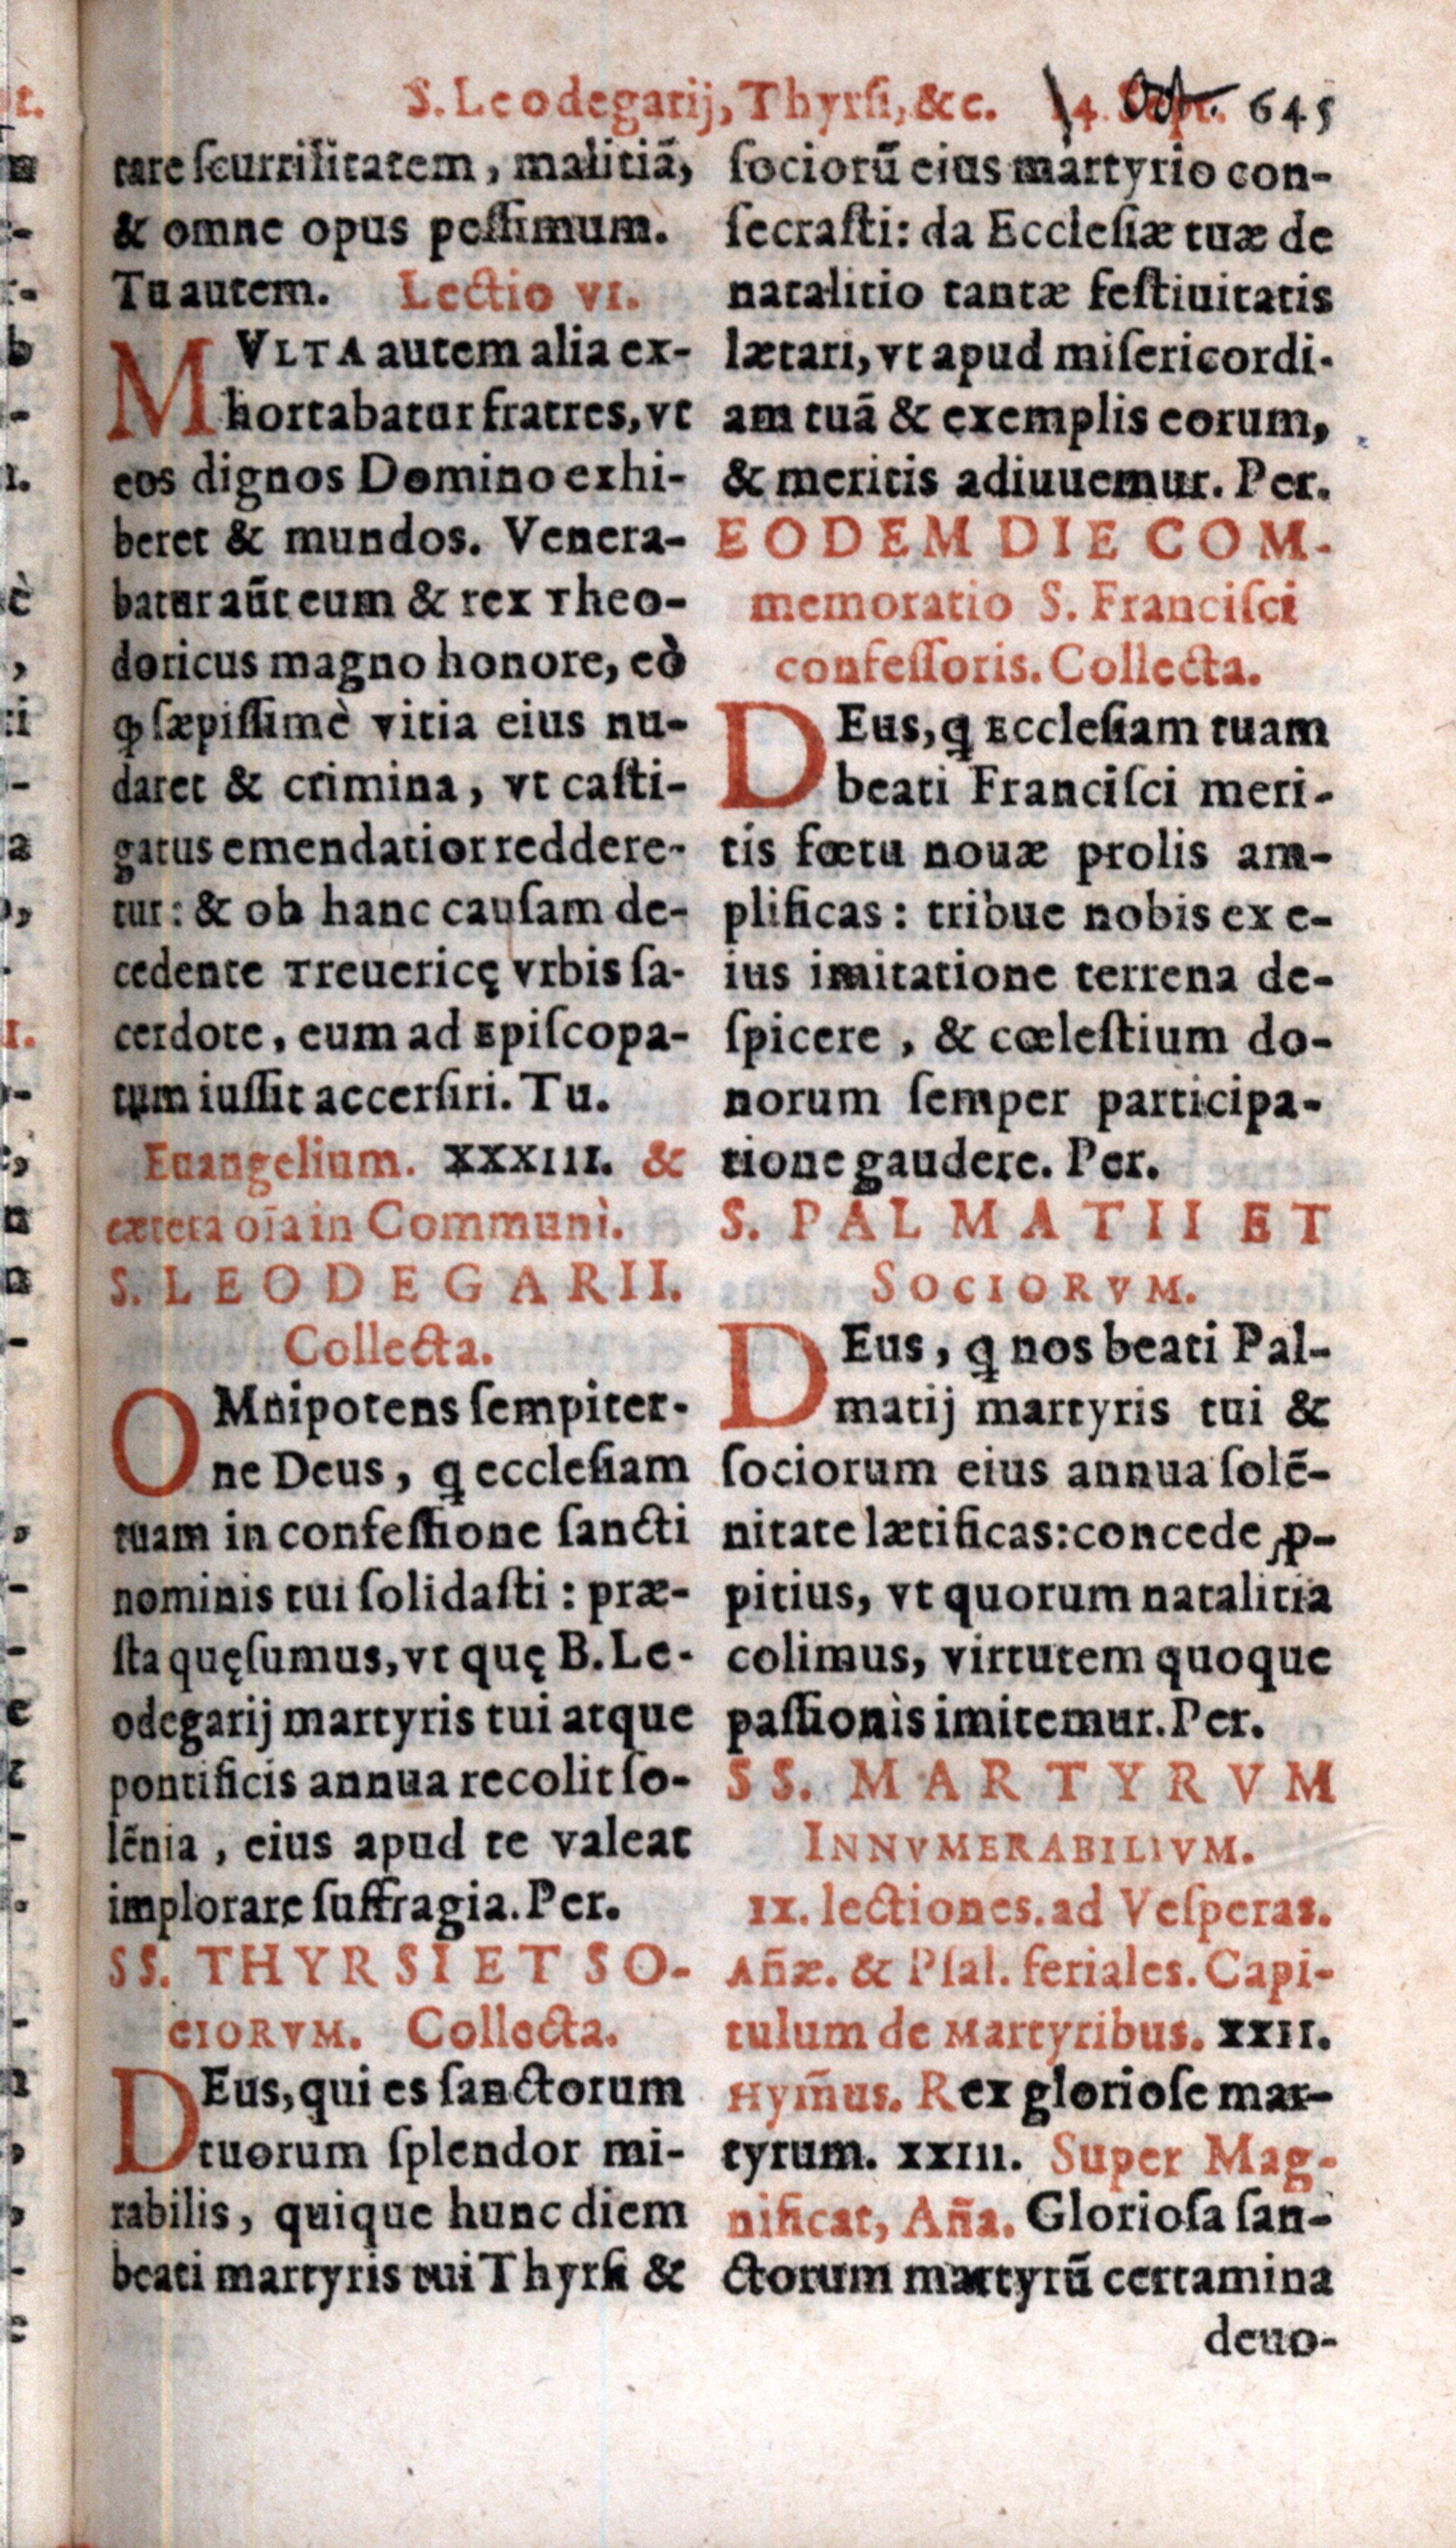 S. Leodegarij, Thyrſi, &c. 4. Oct. 645
tare ſcurrilitatem, malitiã,
& omne opus peſſimum.
Tu autem. Lectio VI.
MVLTA autem alia ex-
hortabatur fratres, vt
eos dignos Domino exhi-
beret & mundos. Venera-
batur aũt eum & rex Theo-
doricus magno honore, eò
ꝙ ſæpiſſimè vitia eius nu-
daret & crimina, vt caſti-
gatus emendatior reddere-
tur: & ob hanc cauſam de-
cedente Treuericę vrbis ſa-
cerdote, eum ad Epiſcopa-
tum iuſſit accerſiri. Tu.
Euangelium. XXXIII. &
cætera oĩa in Communi.
S. LEODEGARII.
Collecta.
OMnipotens ſempiter-
ne Deus, q̃ eccleſiam
tuam in confeſſione ſancti
nominis tui ſolidaſti: præ-
ſta quęſumus, vt quę B. Le-
odegarij martyris tui atque
pontificis annua recolit ſo-
lẽnia, eius apud te valeat
implorare ſuffragia. Per.
SS. THYRSI ET SO-
CIORVM. Collecta.
DEus, qui es ſanctorum
tuorum ſplendor mi-
rabilis, quique hunc diem
beati martyris tui Thyrſi &
ſociorũ eius martyrio con-
ſecraſti: da Eccleſiæ tuæ de
natalitio tantæ feſtiuitatis
lætari, vt apud miſericordi-
am tuã & exemplis eorum,
& meritis adiuuemur. Per.
EODEM DIE COM-
memoratio S. Franciſci
confeſſoris. Collecta.
DEus, q̃ Eccleſiam tuam
beati Franciſci meri-
tis fœtu nouæ prolis am-
plificas: tribue nobis ex e-
ius imitatione terrena de-
ſpicere, & cœleſtium do-
norum ſemper participa-
tione gaudere. Per.
S. PALMATII ET
SOCIORVM.
DEus, q̃ nos beati Pal-
matij martyris tui &
ſociorum eius annua ſolẽ-
nitate lætificas: concede ꝓ-
pitius, vt quorum natalitia
colimus, virtutem quoque
paſſionis imitemur. Per.
SS. MARTYRVM
INNVMERABILIVM.
IX. lectiones. ad Veſperas.
Añæ. & Pſal. feriales. Capi-
tulum de Martyribus. XXII.
Hym̃us. Rex glorioſe mar-
tyrum. XXIII. Super Mag-
nificat, Aña. Glorioſa ſan-
ctorum martyrũ certamina
deuo-